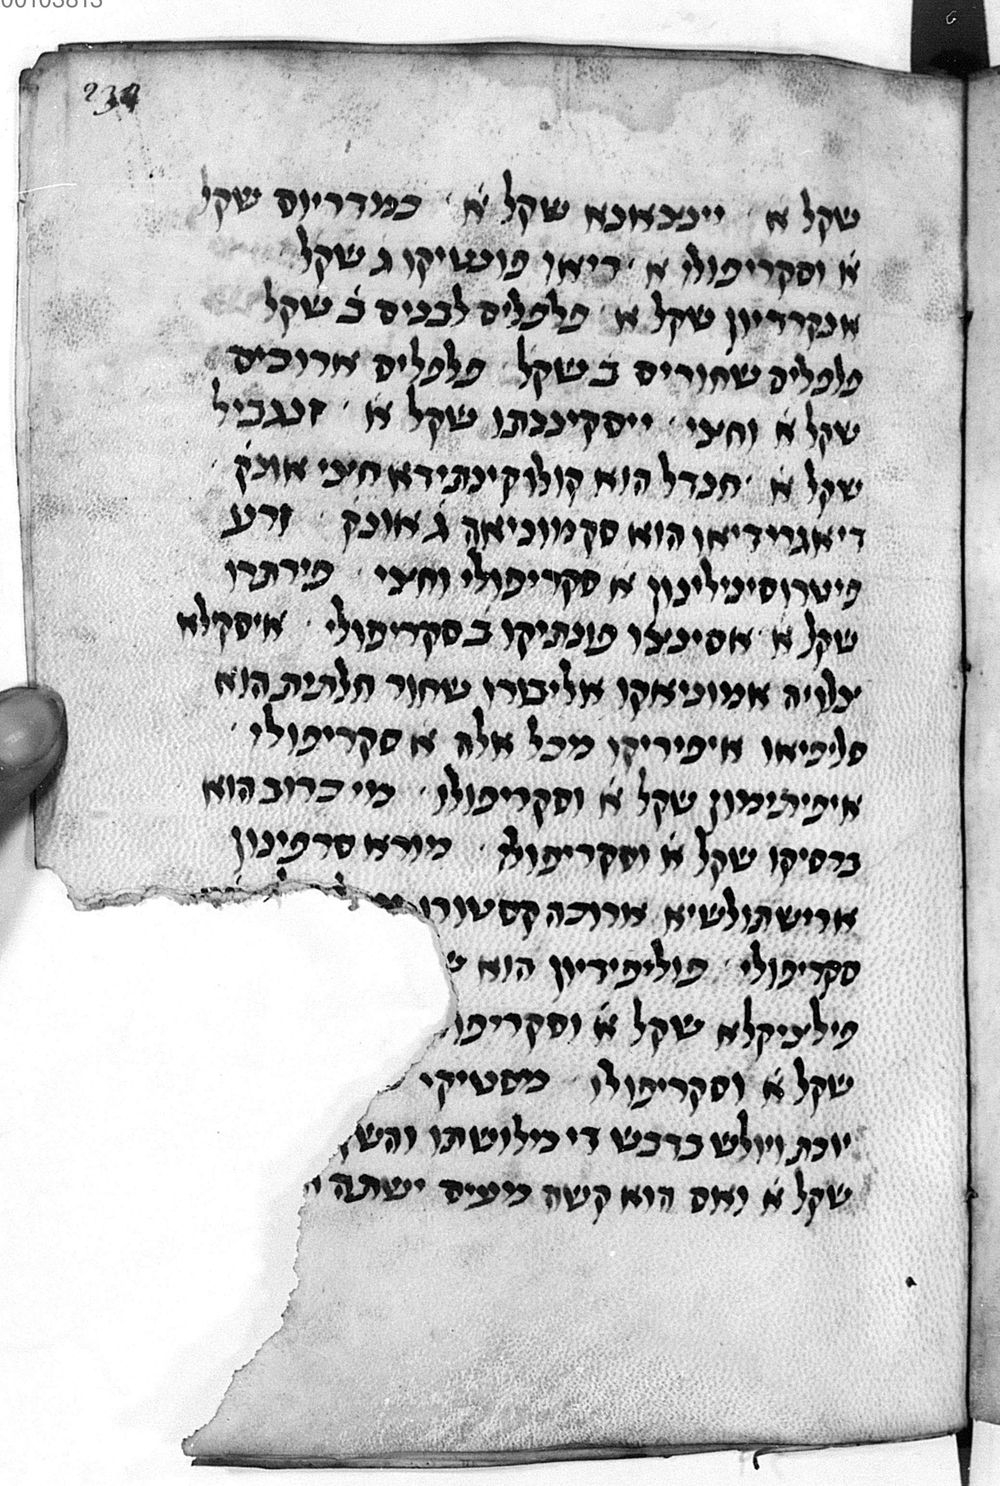 00103813
234
שקל א׳ ייבבאנא שקל א׳ כמדריוס שקל
א׳ וסקריפולו א׳ ריאו פונטיקו ג׳ שקל
אנקרדיון שקל א׳ פלפלים לבנים ב׳ שקל
פלפלים שחורים ב׳ שקל פלפלים ארוכים
שקל א׳ וחצי ייסקיננתו שקל א׳ זנגביל
שקל א׳ חנדל הוא קולוקינתידא חצי אונק׳
דיאגרידיאו הוא סקמוניאה ג׳ אונק׳ זרע
פיטרוסילינון א׳ סקריפולי וחצי פירתרו
שקל א׳ אסינצו פונתיקו ב׳ סקריפולי איסקילא
צלויה אמוניאקו אליבורו שחור חלתית הוא
סלפיאו איפיריקו מכל אלה א׳ סקריפולי
איפיתימון שקל א׳ וסקריפולו מי כרוב הוא
ברסיקו שקל א׳ וסקריפולו מורא סרפינון
ארישתולשיא ארוכה קסטורו
סקריפולי פוליפידיון הוא
פילציקלא שקל א׳ וסקריפו
שקל א׳ וסקריפולו מסטיקי
יוכת ויולש בדבש די מילוטתו והשק
שקל א׳ ואם הוא קשה מעים ישתה